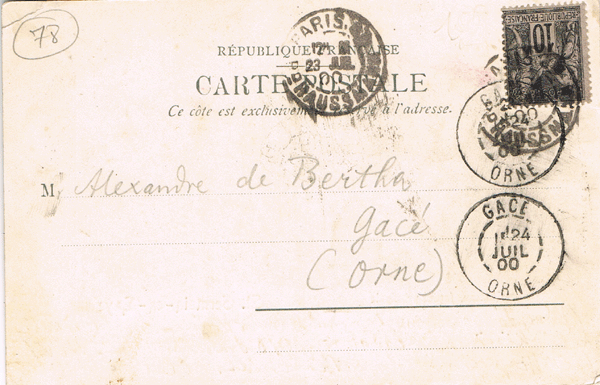 78
RÉPUBLIQUE FRANÇAISE
CARTE POSTALE
Ce côte est exclusivement réservé à l'adresse.
PARIS
23 JUIL 00
Bd HAUSSMANN
RÉPUBLIQUE FRANÇAISE
10
HAUSSMANN
00
ORNE
M. Alexandre de Bertha
Gacé
(Orne)
GACÉ
24
JUIL
00
ORNE